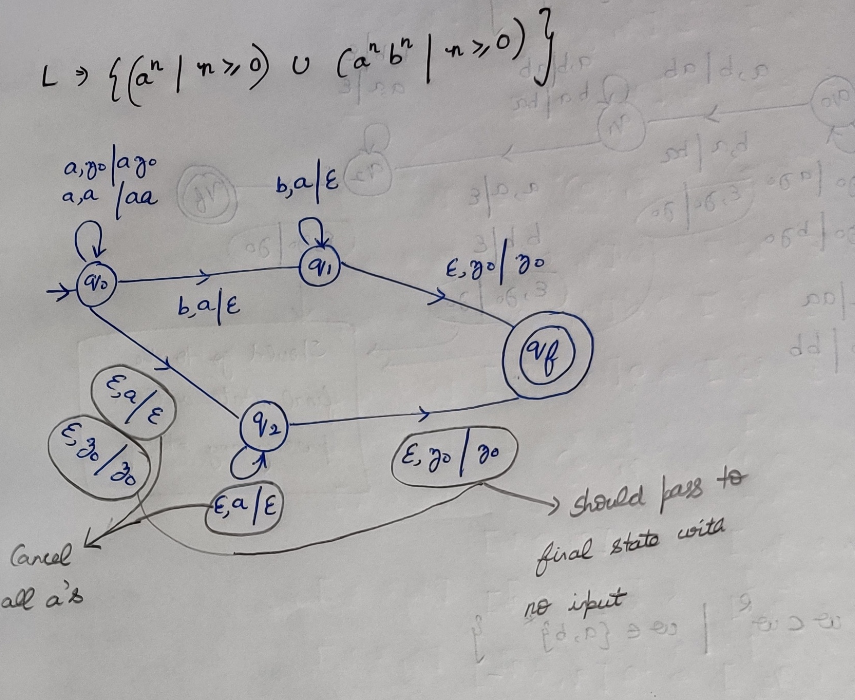 L → {(aⁿ | n ≥ 0) ∪ (aⁿbⁿ | n ≥ 0)}
a, z₀ | a z₀
a, a | aa
b, a | ε
q₀
q₁
b, a | ε
ε, z₀ | z₀
qf
ε, a | ε
ε, z₀ | z₀
q₂
ε, z₀ | z₀
ε, a | ε
Cancel
all a's
should pass to
final state with
no input